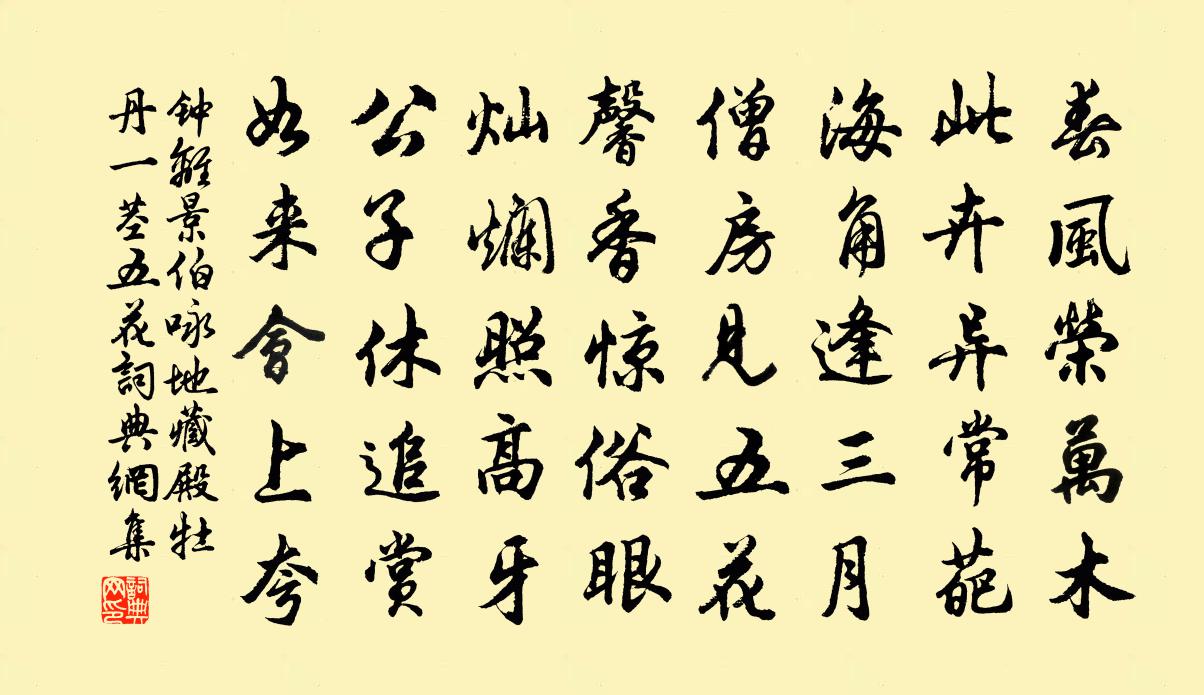 春風榮萬木
此卉异常葩
海角逢三月
僧房見五花
馨香惊俗眼
灿斓照高牙
公子休追赏
如来會上夸
钟離景伯咏地藏殿牡
丹一莖五花詞典網集
詞典
网印